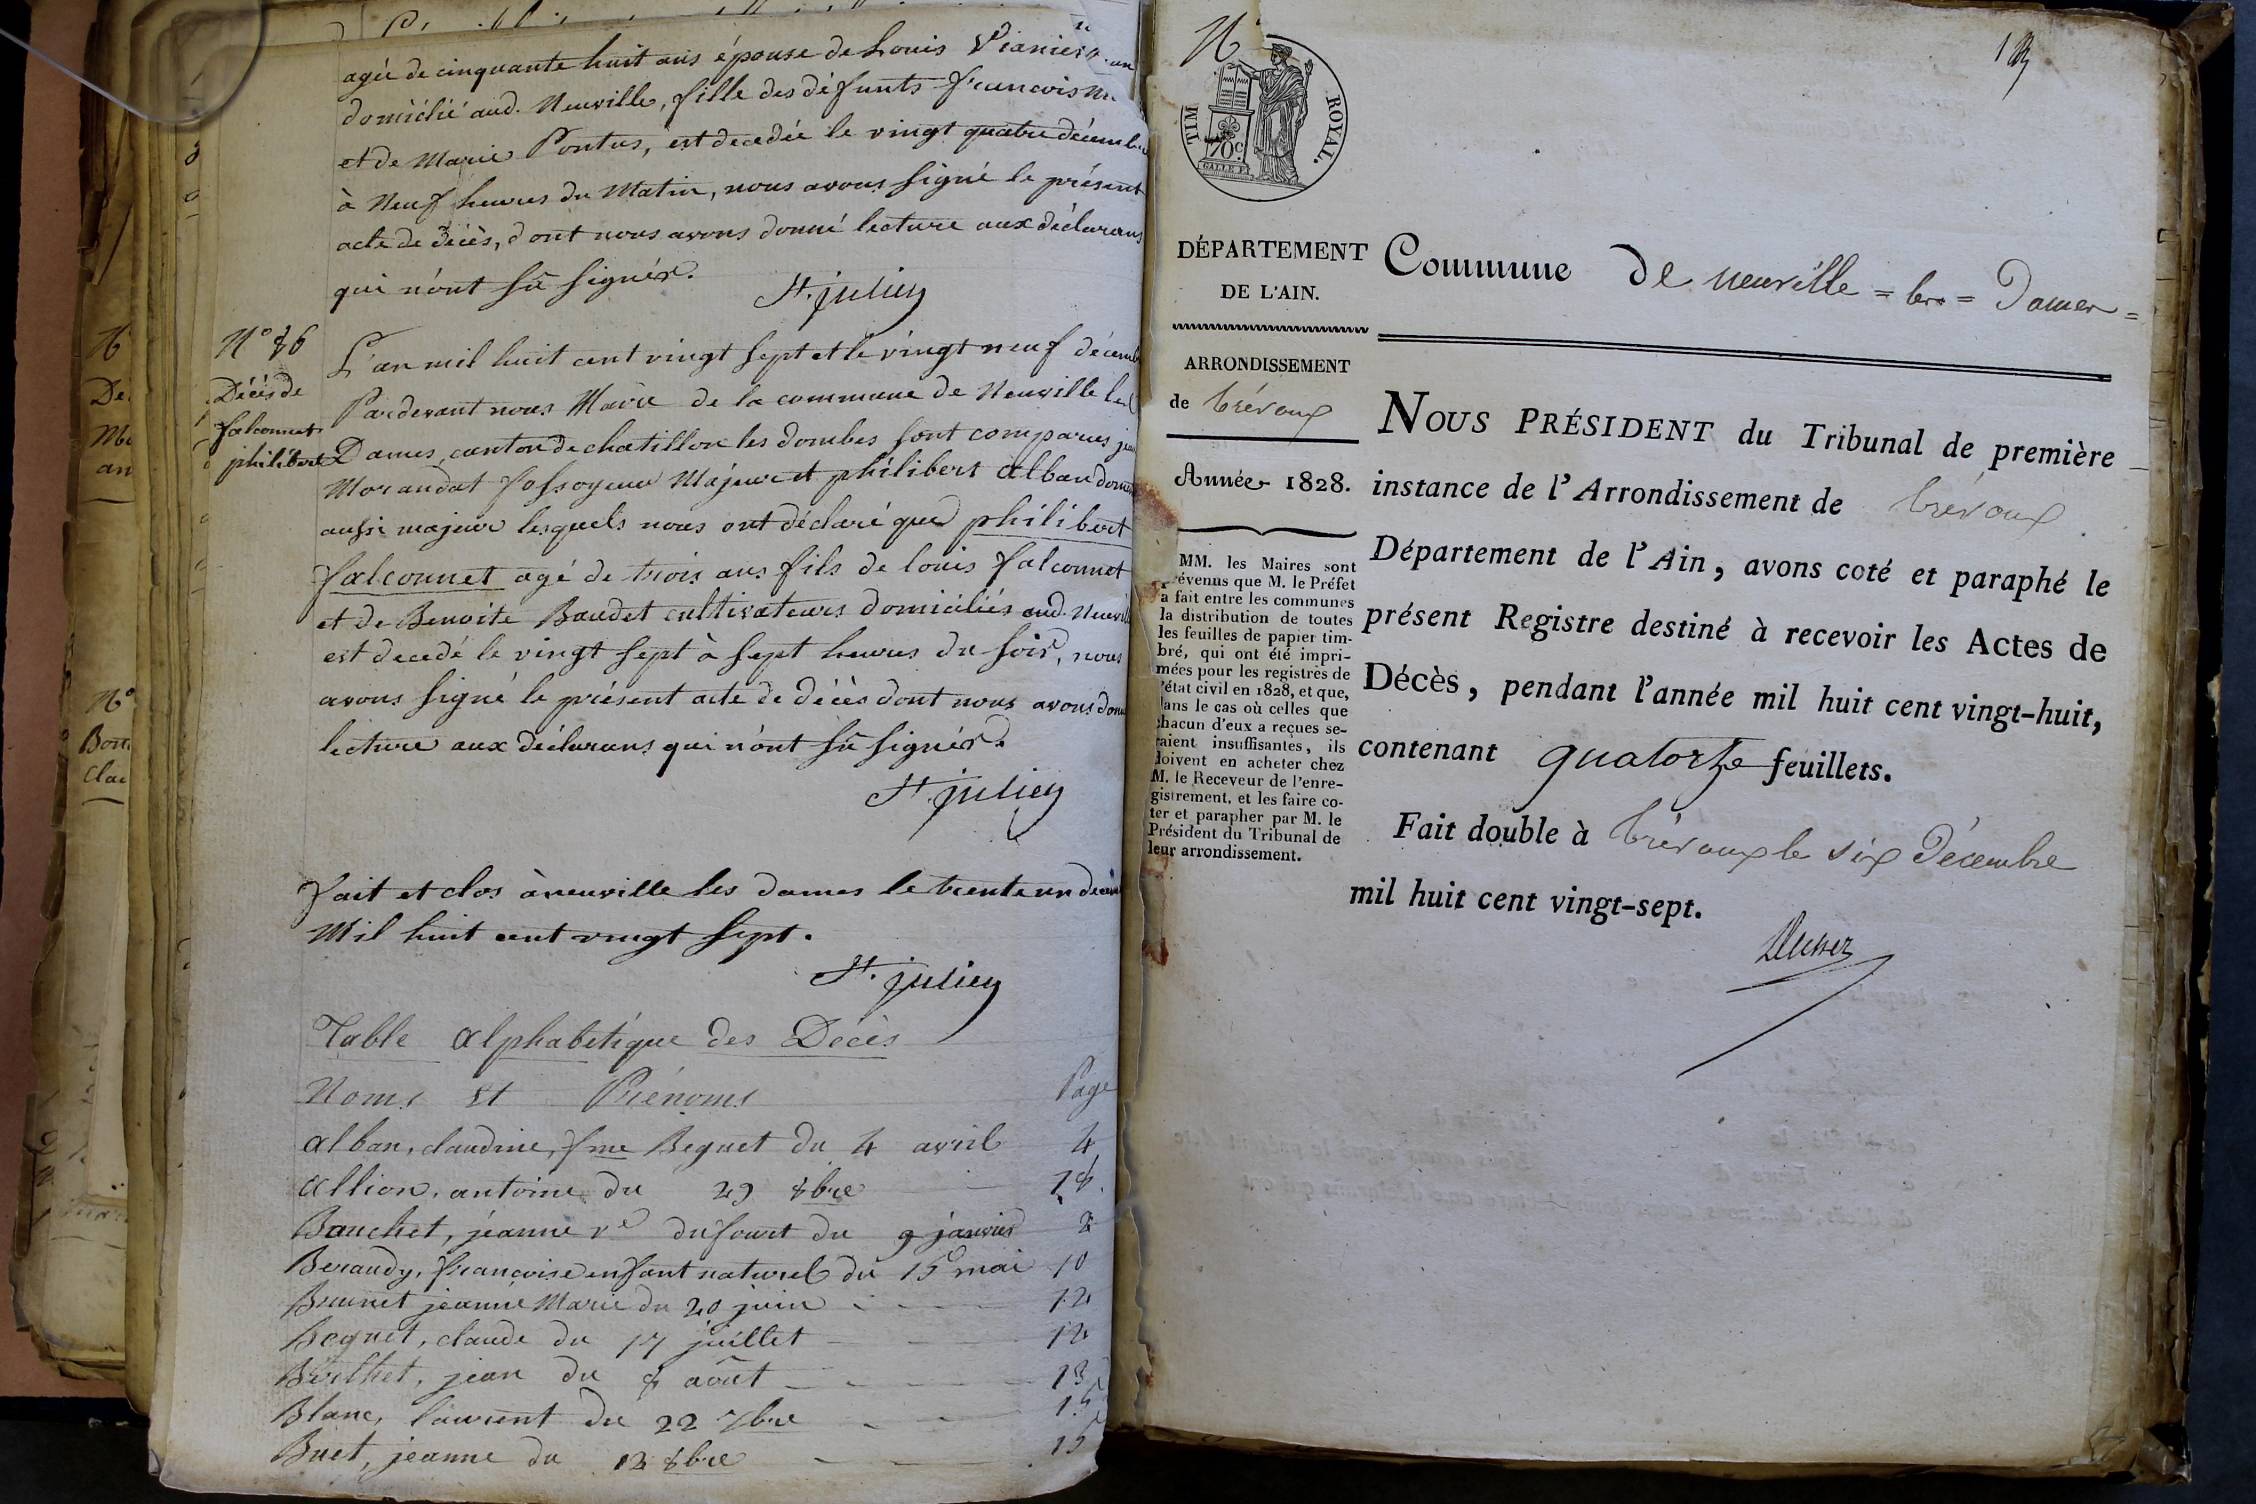 agée de cinquante huit ans épouse de Louis
domicilié aud. Neuville, fille des défunts francois
et de Marie Pontus, est decedée le vingt quatre décembre
à Neuf heures du Matin, nous avons signé le présent
acte de décès, dont nous avons donné lecture aux déclarans
qui n'ont sû signér.
St. julien
N° 86
Décès de
falconnet
philibert
L'an mil huit cent vingt sept et le vingt neuf décemb
Pardevant nous Maire de la commune de Neuville les
Dames, canton de chatillon les dombes sont comparus
Morandat fossoyeur Majeur et philibert alban
aussi majeur lesquels nous ont déclaré que philibert
falconnet agé de trois ans fils de louis falconnet
et de Benoite Baudet cultivateurs domiciliés aud. Neuville
est decedé le vingt sept à sept heures du soir, nous
avons signé le présent acte de décès dont nous avons donné
lecture aux déclarans qui n'ont sû signér.
St. julien
fait et clos à neuville les dames le trente un decem
Mil huit cent vingt sept.
St. julien
Table alphabétique des Décès
Noms et Prénoms Page
alban, claudine, fme Beguet du 4 avril 4
allion, antoine du 29 8bre 18.
Bauchet, jeanne ve dufourt du 9 janvier 2
Beraudy, francoise enfant naturel du 15 mai 10
Brunet jeanne Marie du 20 juin 12
Beguet, claude du 17 juillet 12
Berthet, jean du 8 août 13
Blanc, laurent du 22 7bre 15
Buet, jeanne du 12 8bre 15
TIM ROYAL.
70c
GALLE F.
DÉPARTEMENT
DE L'AIN.
Commune de neuville = les = Dames =
ARRONDISSEMENT
de trévoux
Année 1828.
MM. les Maires sont
prévenus que M. le Préfet
a fait entre les communes
la distribution de toutes
les feuilles de papier tim-
bré, qui ont été impri-
mées pour les registres de
l'état civil en 1828, et que,
dans le cas où celles que
chacun d'eux a reçues se-
raient insuffisantes, ils
doivent en acheter chez
M. le Receveur de l'enre-
gistrement, et les faire co-
ter et parapher par M. le
Président du Tribunal de
leur arrondissement.
NOUS PRÉSIDENT du Tribunal de première
instance de l'Arrondissement de trévoux
Département de l'Ain, avons coté et paraphé le
présent Registre destiné à recevoir les Actes de
Décès, pendant l'année mil huit cent vingt-huit,
contenant quatorze feuillets.
Fait double à trévoux le six Décembre
mil huit cent vingt-sept.